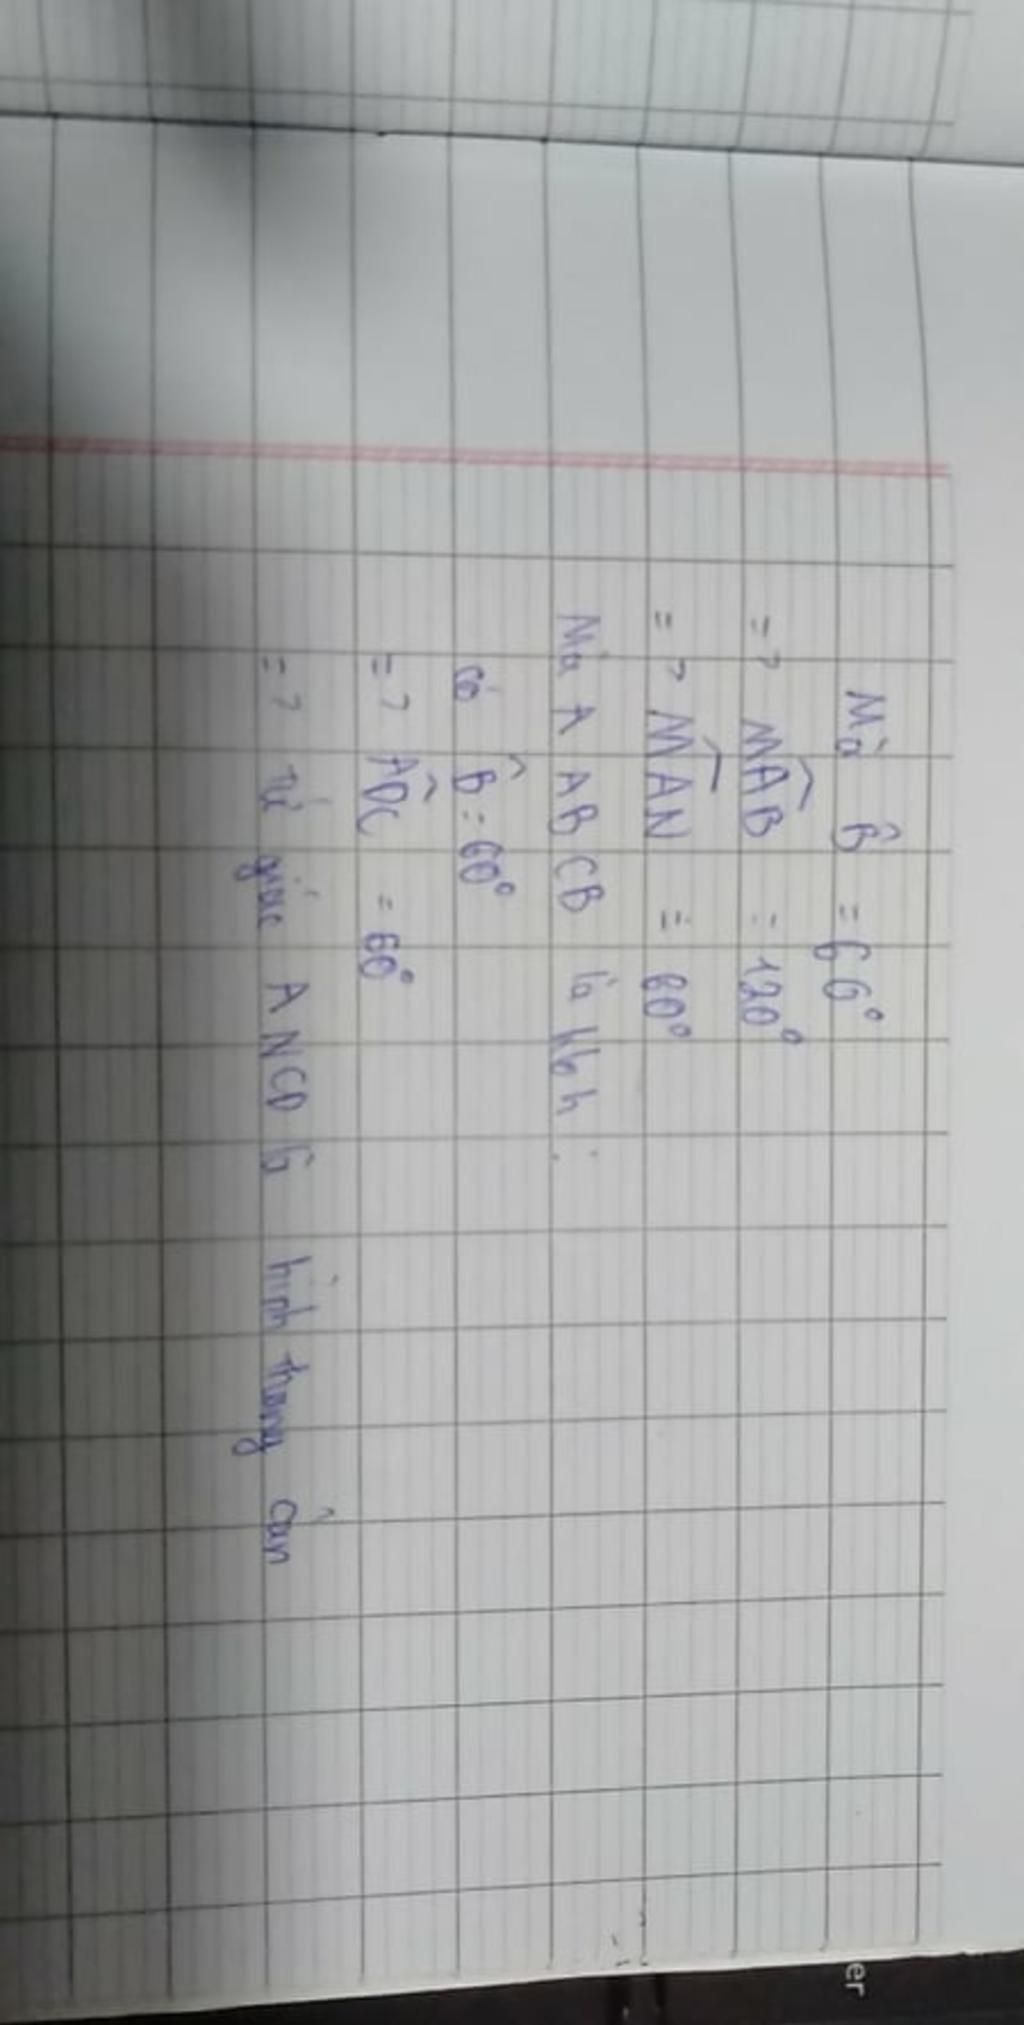 Mà B̂ = 60°
=> MAB = 120°
=> MAN = 60°
Mà A ABCB là hbh :
có B̂ = 60°
=> ADC = 60°
=> tứ giác ANCD là hình thang cân
er